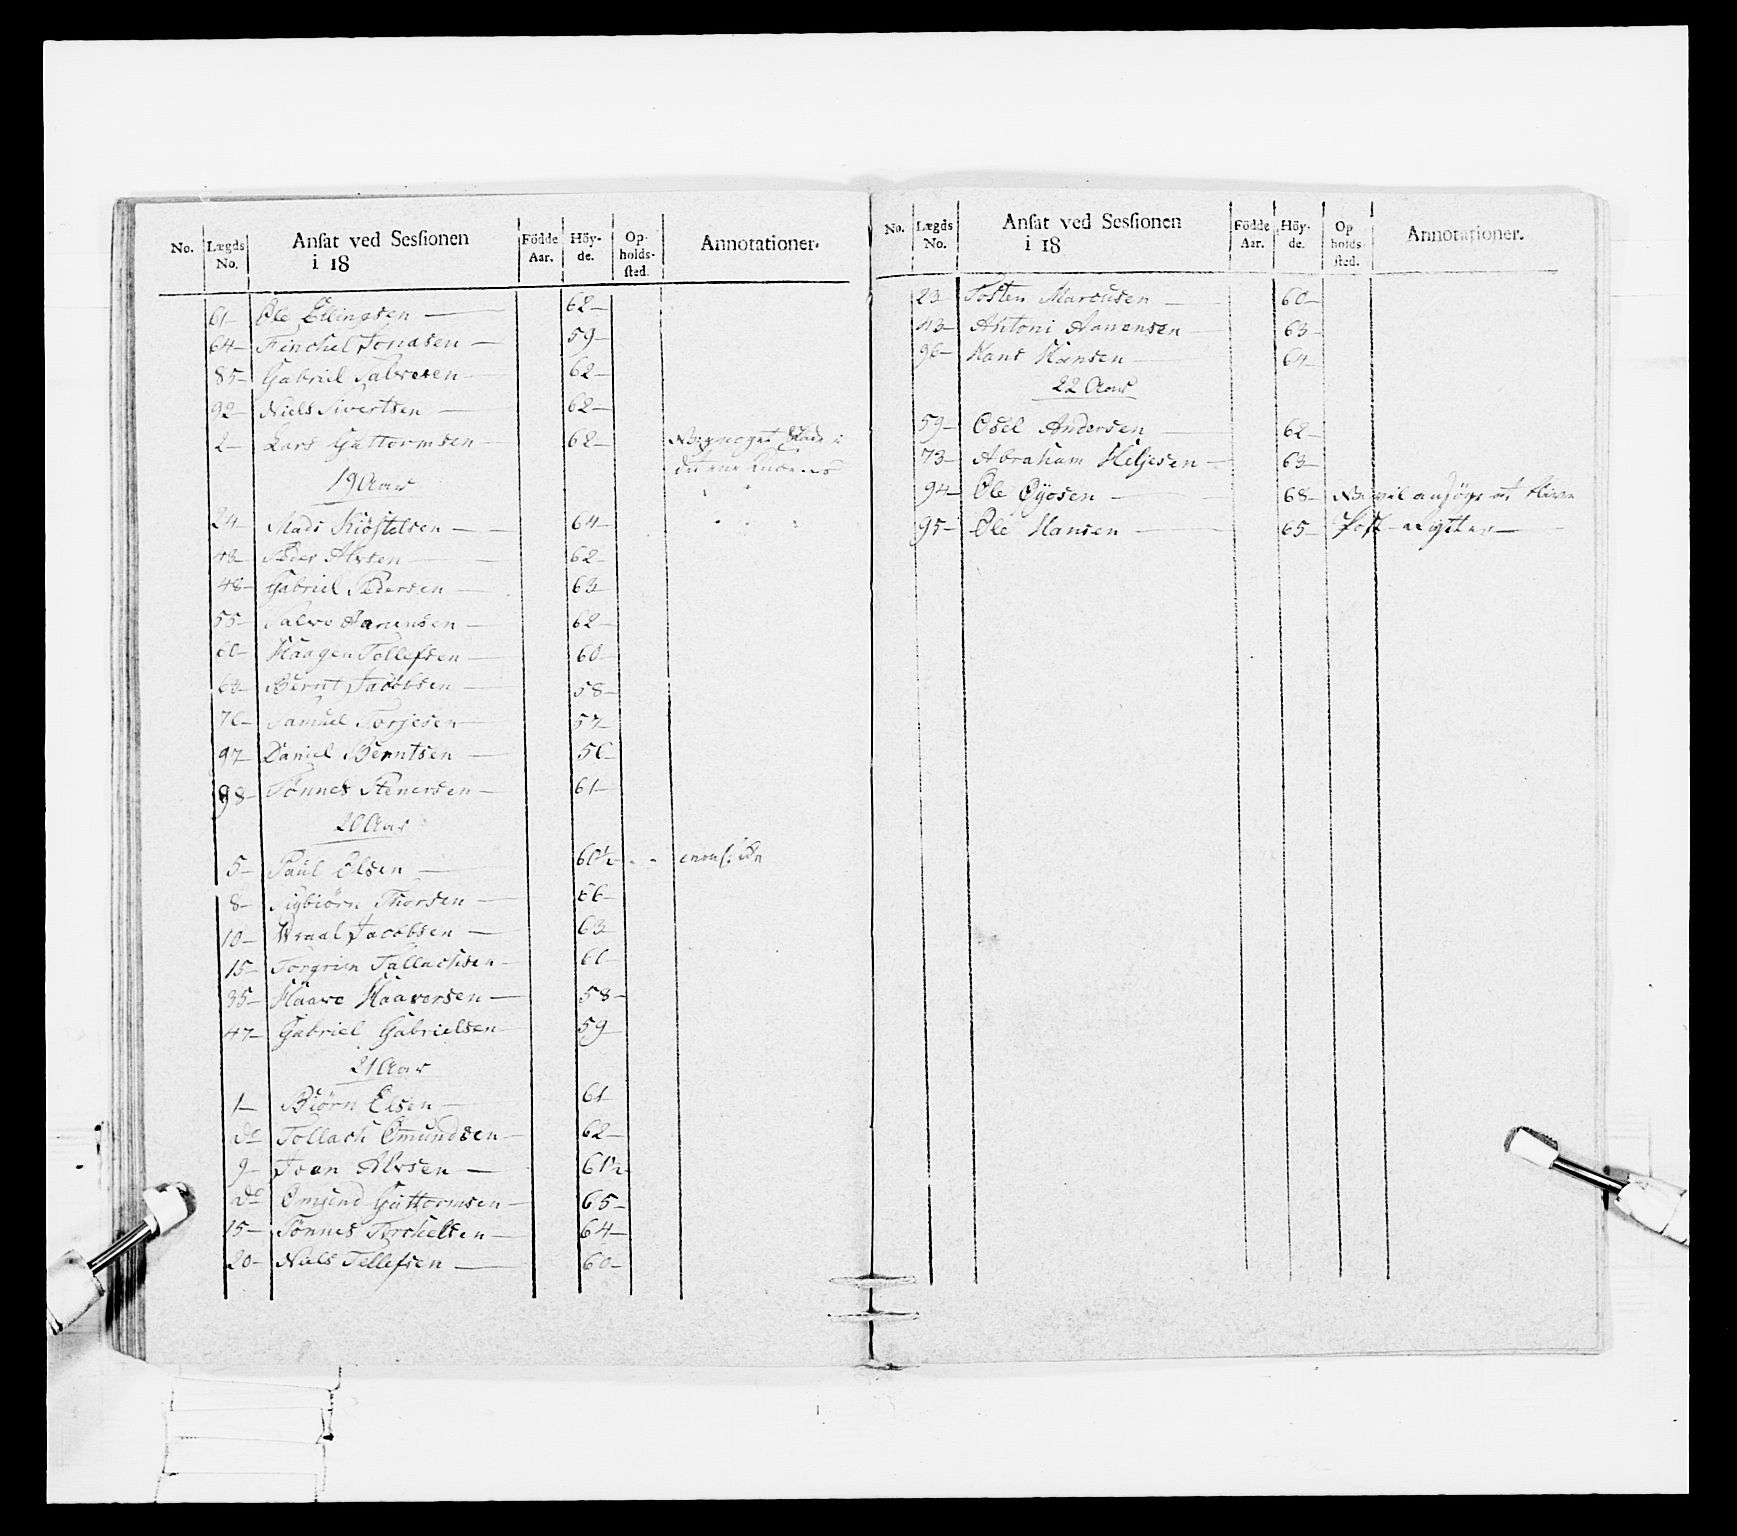 No. Lægds No. Ansat ved Sessionen i 18 Födde Aar. Höyde. Opholdssted. Annotationer.
61 – Ole Ellingsen – 62 –
64 – Finchel Jonasen – 59 –
85 – Gabriel Salvesen 62 –
92 – Niels Sivertsen – 62 –
2 – Lars Guttormsen – 62 –
19 Aar
24 – Mads Kiöstelsen – 64 –
43 – Peder Alvsen – 62 –
48 – Gabriel Pedersen – 63
55 – Salve Aanensen – 62 –
60 – Haagen Tollefsen – 60 –
63 – Bernt Jacobsen – 58 –
70 – Samuel Torjesen 57 –
97 Daniel Berntsen – 50 –
98 – Tönnes Stenersen – 61 –
20 Aar
5 – Paul Olsen – 60½
8 – Sigbiörn Thorsen – 66 –
10 – Wraal Jacobsen – 63
15 – Torgrim Tallachsen – 60 –
35 – Haave Haaversen – 58 –
47 – Gabriel Gabrielsen 59
21 Aar
1 – Biörn Elsen – 61
do Tollach Omundsen – 62 –
9 – Joen Alvsen – 61½
do Omund Guttormsen – 65 –
15 – Tönnes Torchelsen – 64 –
20 – Niels Tellefsen – 60 –
No. Lægds No. Ansat ved Sessionen i 18 Födde Aar. Höyde. Opholdssted. Annotationer.
23 Tosten Marcusen – 60 –
43 – Antoni Aanensen – 63 –
96 – Hans Hansen – 64 –
22 Aar
59 – Osel Andersen – 62 –
73 – Abraham Heljesen – 63 –
94 – Ole Öyosen – 68 – vil ansöge at blive
95 – Ole Hansen – 65 – Post